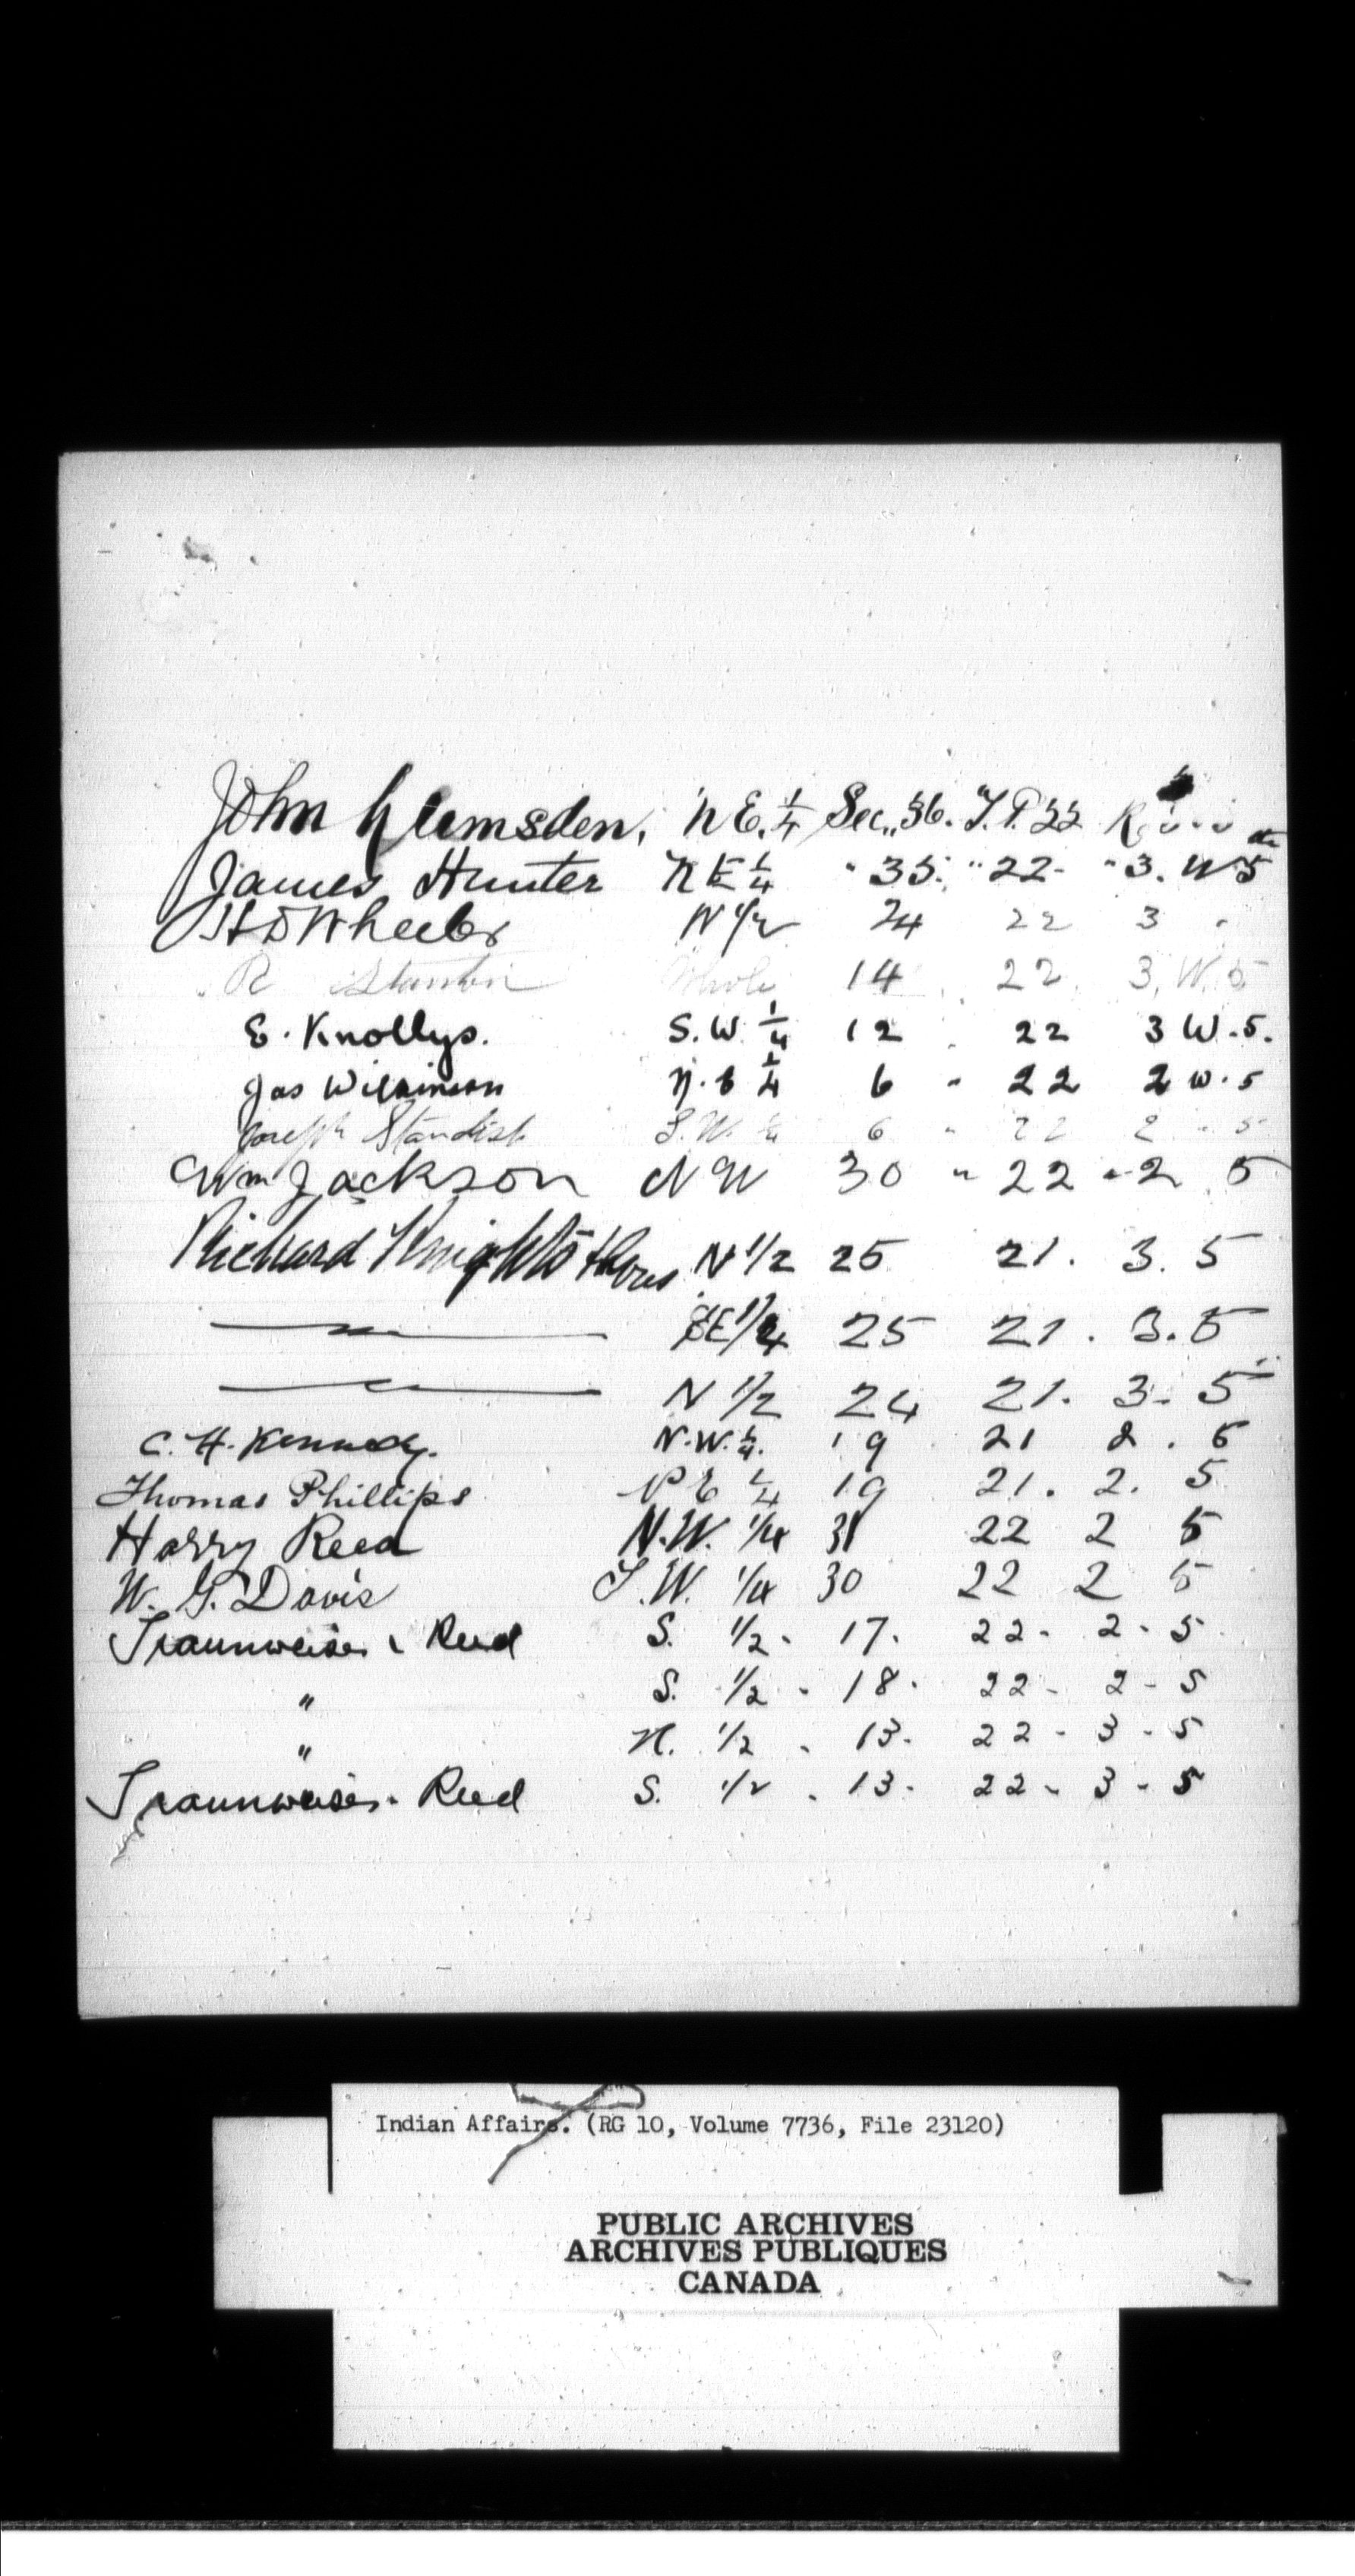 John Lumsden, N E. 1/4 Sec,, 36. T.P. 22 R.
James Hunter N E 1/4 " 35. " 22 - " 3. W 5
H D Wheeler N 1/2 24 22 3 "
R Stanton Whole 14 22 3. W. 5
E. Knollys. S. W 1/4 12 22 3 W. 5.
Jas Wilkinson N. E 1/4 6 " 22 2 W. 5
Joseph Standish S. W. 1/4 6 " 22 2 - 5
Wm Jackson N W 30 " 22 " 2 5
Richard Knight & Sons N 1/2 25 21. 3. 5
SE 1/4 25 21. 3. 5
N 1/2 24 21. 3. 5
C. H. Kennedy. N. W. 1/4. 19 21 2. 5
Thomas Phillips N E 1/4 19 21. 2. 5
Harry Reed N. W. 1/4 31 22 2 5
W. G. Davis S. W. 1/4 30 22 2 5
Traunweiser & Reed S. 1/2 - 17. 22 - 2 - 5
" S. 1/2 - 18. 22 - 2 - 5
" N. 1/2 - 13. 22 - 3 - 5
Traunweiser - Reed S. 1/2 - 13. 22 - 3 - 5
Indian Affairs. (RG 10, Volume 7736, File 23120)
PUBLIC ARCHIVES
ARCHIVES PUBLIQUES
CANADA